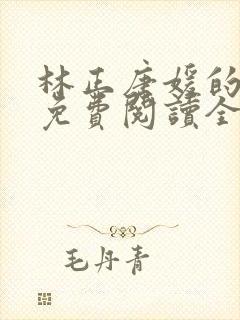 林正唐媛的
免費閱讀全
毛丹青